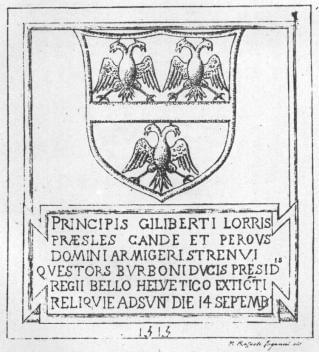 PRINCIPIS GILIBERTI LORRIS
PRÆSLES CANDE ET PEROVS
DOMINI ARMIGERI STRENVI
QVESTORS BVRBONI DVCIS PRESIDIS
REGII BELLO HELVETICO EXTICTI
RELIQVIE ADSVNT DIE 14 SEPEMB
1515